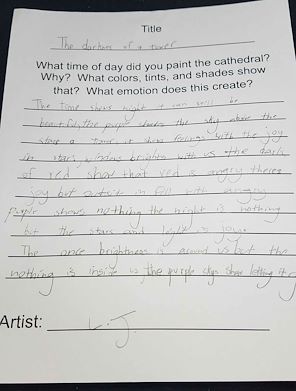 Title
The darkness of a tower
What time of day did you paint the cathedral?
Why? What colors, tints, and shades show
that? What emotion does this create?
The time shows night it can still be
beautiful, the purple shows the sky above the
a tower it show feelings with the joy
in stars, windows brights with us the dark
of red show that red is angry theres
joy but outside im fill with angry
Purple shows nothing the night is nothing
but the stars and light is joy.
The once brightness is around us but the
nothing is inside us, the purple sky show letting it go
Artist: L.J.